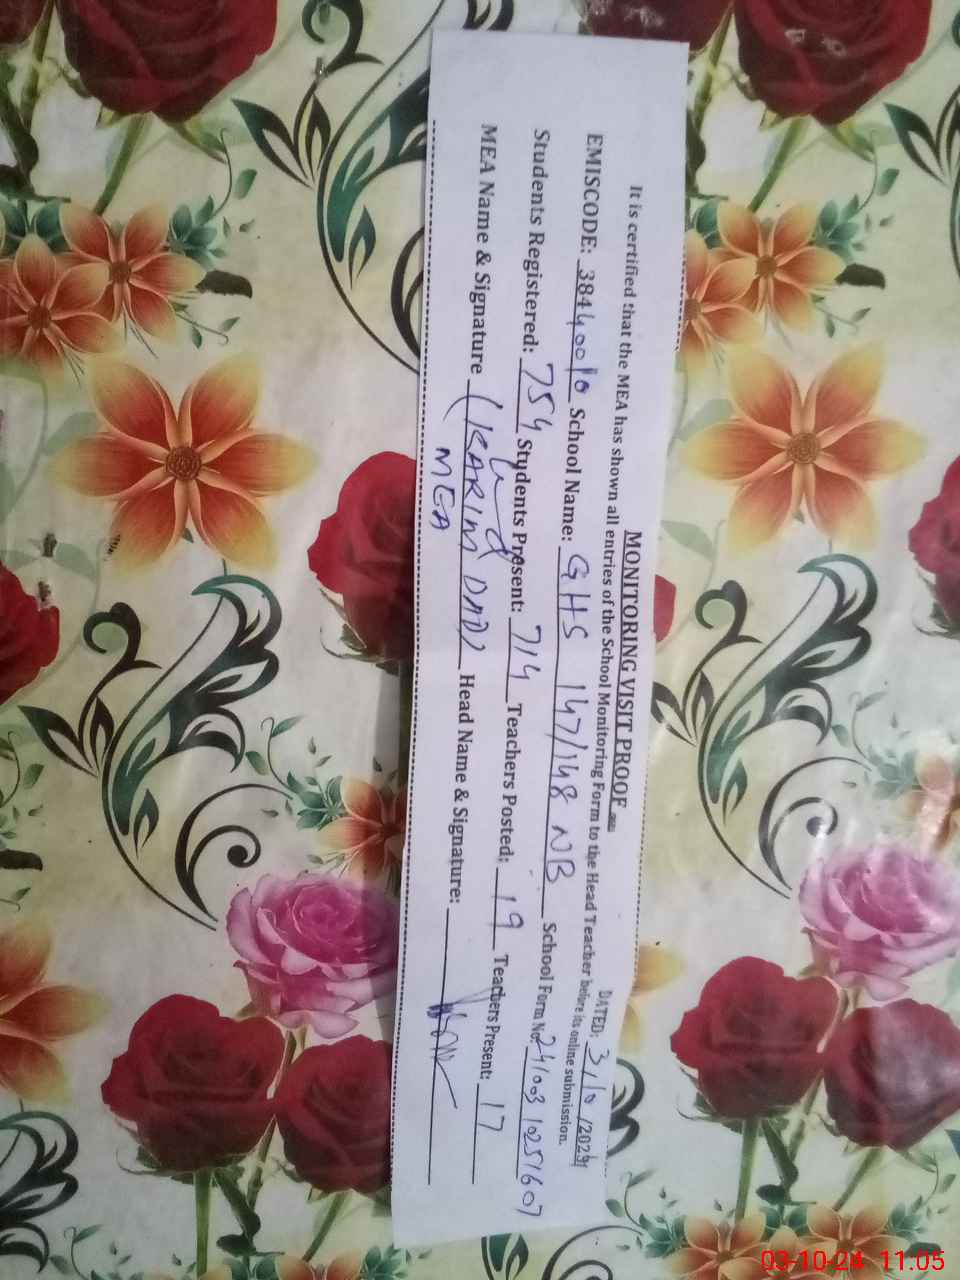 MONITORING VISIT PROOF
DATED: 3/10/2024
It is certified that the MEA has shown all entries of the School Monitoring Form to the Head Teacher before its online submission.
EMISCODE: 38440010 School Name: GHS 147/148 NB School Form No: 241003 10251607
Students Registered: 754 Students Present: 714 Teachers Posted: 19 Teachers Present: 17
MEA Name & Signature (KARIM DAD) Head Name & Signature:
MEA
03-10-24 11:05